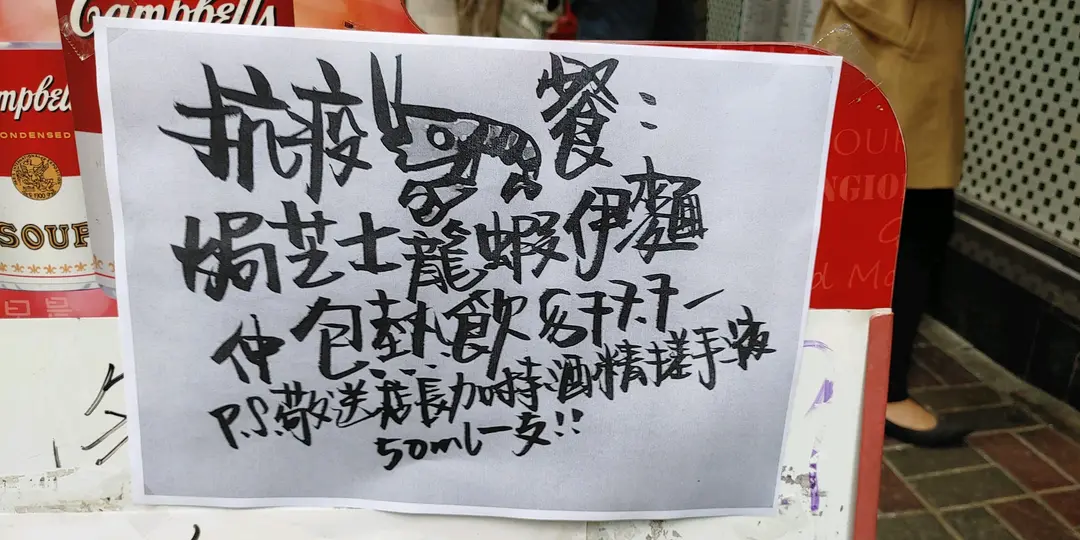 Campbell's
mpbel
CONDENSED
SOUP
抗疫餐:
焗芝士龍蝦伊麵
仲包熱飲$77.7
P.S.敬送店長加持酒精搓手液
50ml一支!!
OUP
NGIO
d Mo